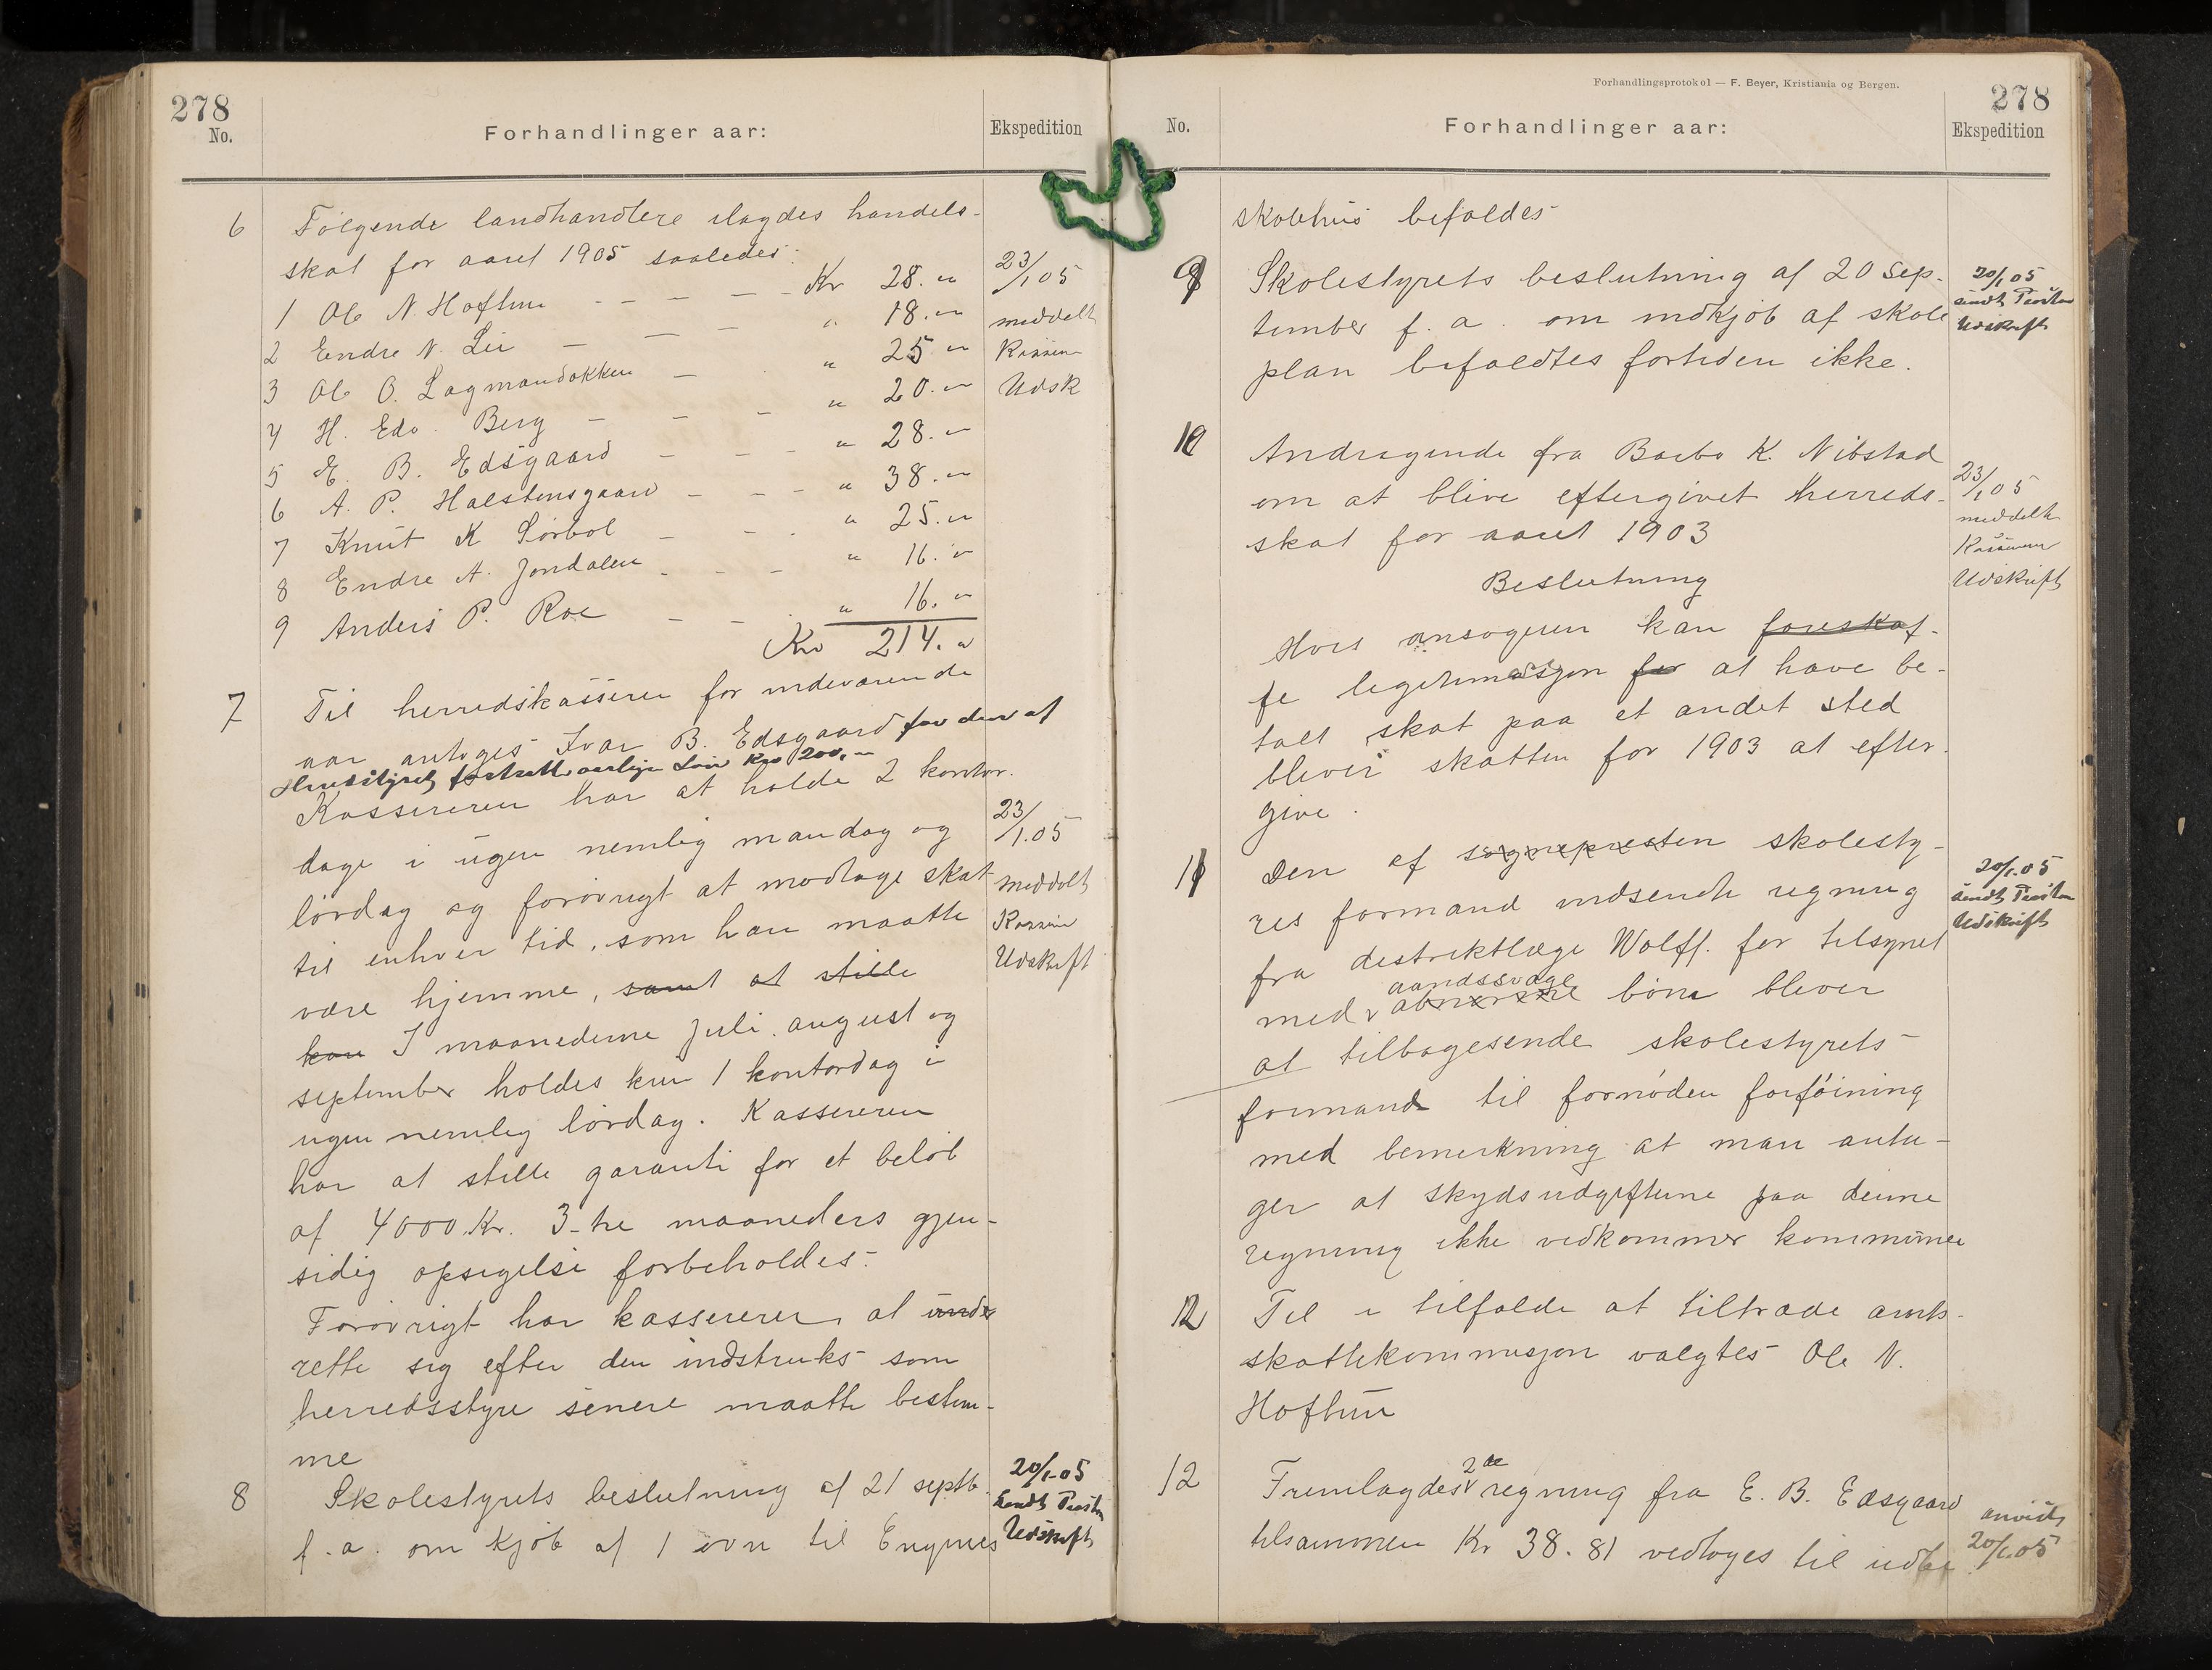 278
No.
Forhandlinger aar:
Ekspedition
6 Følgende landhandlere ilagdes handels-
skat for aaret 1905 saaledes:
1 Ole N. Hoftun - - - - Kr 28.
2 Endre N. Lii - - - " 18.
3 Ole O. Lagmandokken - " 25
4 H. Edv. Berg - - - " 20.
5 E. B. Edsgaard - - - " 28.
6 A. P. Halstensgaard - - - " 38.
7 Knut K Sørbøl - - - " 25.
8 Endre A. Jondalen - - - " 16.
9 Anders P. Roe - - - " 16.
Kr 214.
23/1 05
meddelt
Udsk
7 Til herredskasserer for indeværende
aar antoges Ivar B. Edsgaard for den af
Herredstyret fastsatte aarlige Løn Kr 200,-
Kassereren har at holde 2 kontor.
dage i ugen nemlig mandag og
lørdag og forøvrigt at modtage skat
til enhver tid, som han maatte
være hjemme, samt at stille
kan I maanederne juli, august og
september holdes kun 1 kontordag i
ugen nemlig lørdag. Kassereren
har at stille garanti for et beløb
af 4000 Kr. 3-tre maaneders gjen-
sidig opsigelse forbeholdes.
Forøvrigt har kassereren at
rette sig efter den indstruks som
herredsstyre senere maatte bestem-
me
23/1.05
meddelt
Udskrift
8 Skolestyrets beslutning af 21 septb.
f. a. om kjøb af 1 ovn til
20/1-05
Sendt
Udskrift
Forhandlingsprotokol — F. Beyer, Kristiania og Bergen.
278
No.
Forhandlinger aar:
Ekspedition
skolehus bifaldes
9 Skolestyrets beslutning af 20 Sep-
tember f. a. om indkjøb af skole
plan bifaldtes fortiden ikke.
20/1 05
sendt
Udskrift
10 Andragende fra Barbo K. Nibstad
om at blive eftergivet herreds-
skat for aaret 1903
Beslutning
Hvis ansøgeren kan fores­kaf-
fe legitimasjon for at have be-
talt skat paa et andet sted
bliver skatten for 1903 at efter-
give.
23/1 05
meddelt
Udskrift
11 Den af sognepresten skolesty-
res formand indsendte regning
fra destriktlæge Wolff. for tilsynet
aandssvage
med v abnormale børn bliver
at tilbagesende skolestyrets
formand til fornøden forføining
med bemerkning at man anta-
ger at skydsudgifterne paa denne
regning ikke vedkommer kommunen
20/1.05
sendt
Udskrift
12 Til i tilfælde at tiltræde amts-
skattekommisjon valgtes Ole N.
Hoftun
12 Fremlagdes 2de regning fra E. B. Edsgaard
tilsammen Kr 38.81 vedtoges til udbe
anvist
20/1.05